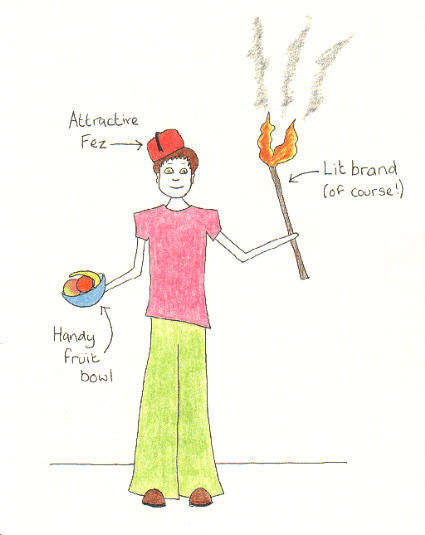 Attractive
Fez
Lit brand
(of course!)
Handy
fruit
bowl